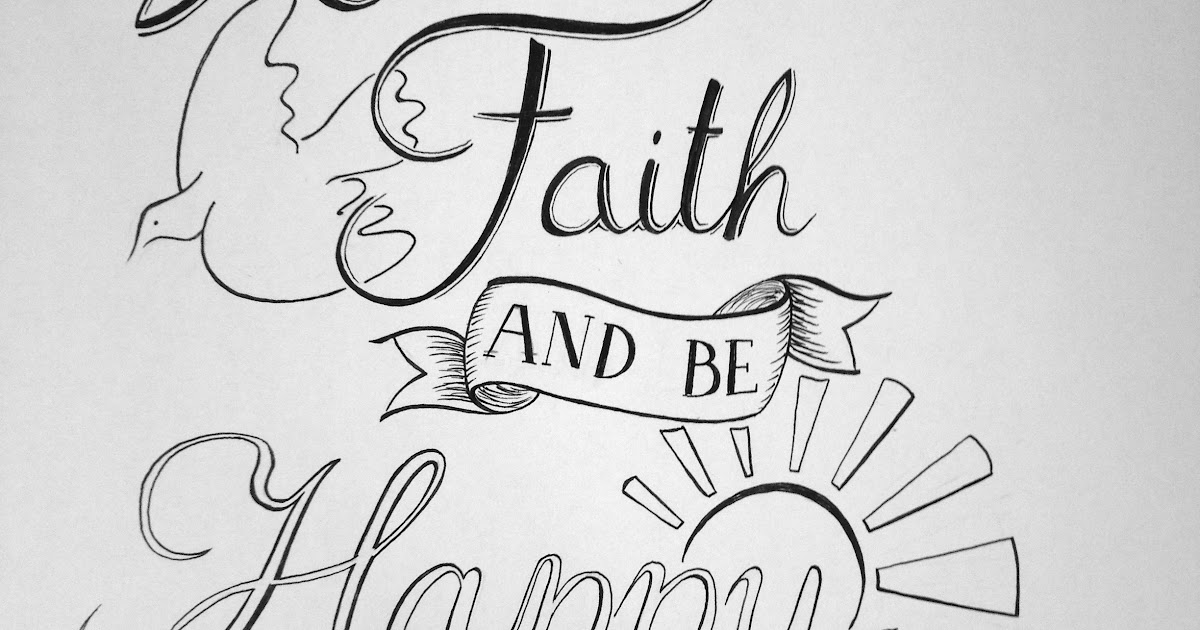 Faith
AND BE
Happy